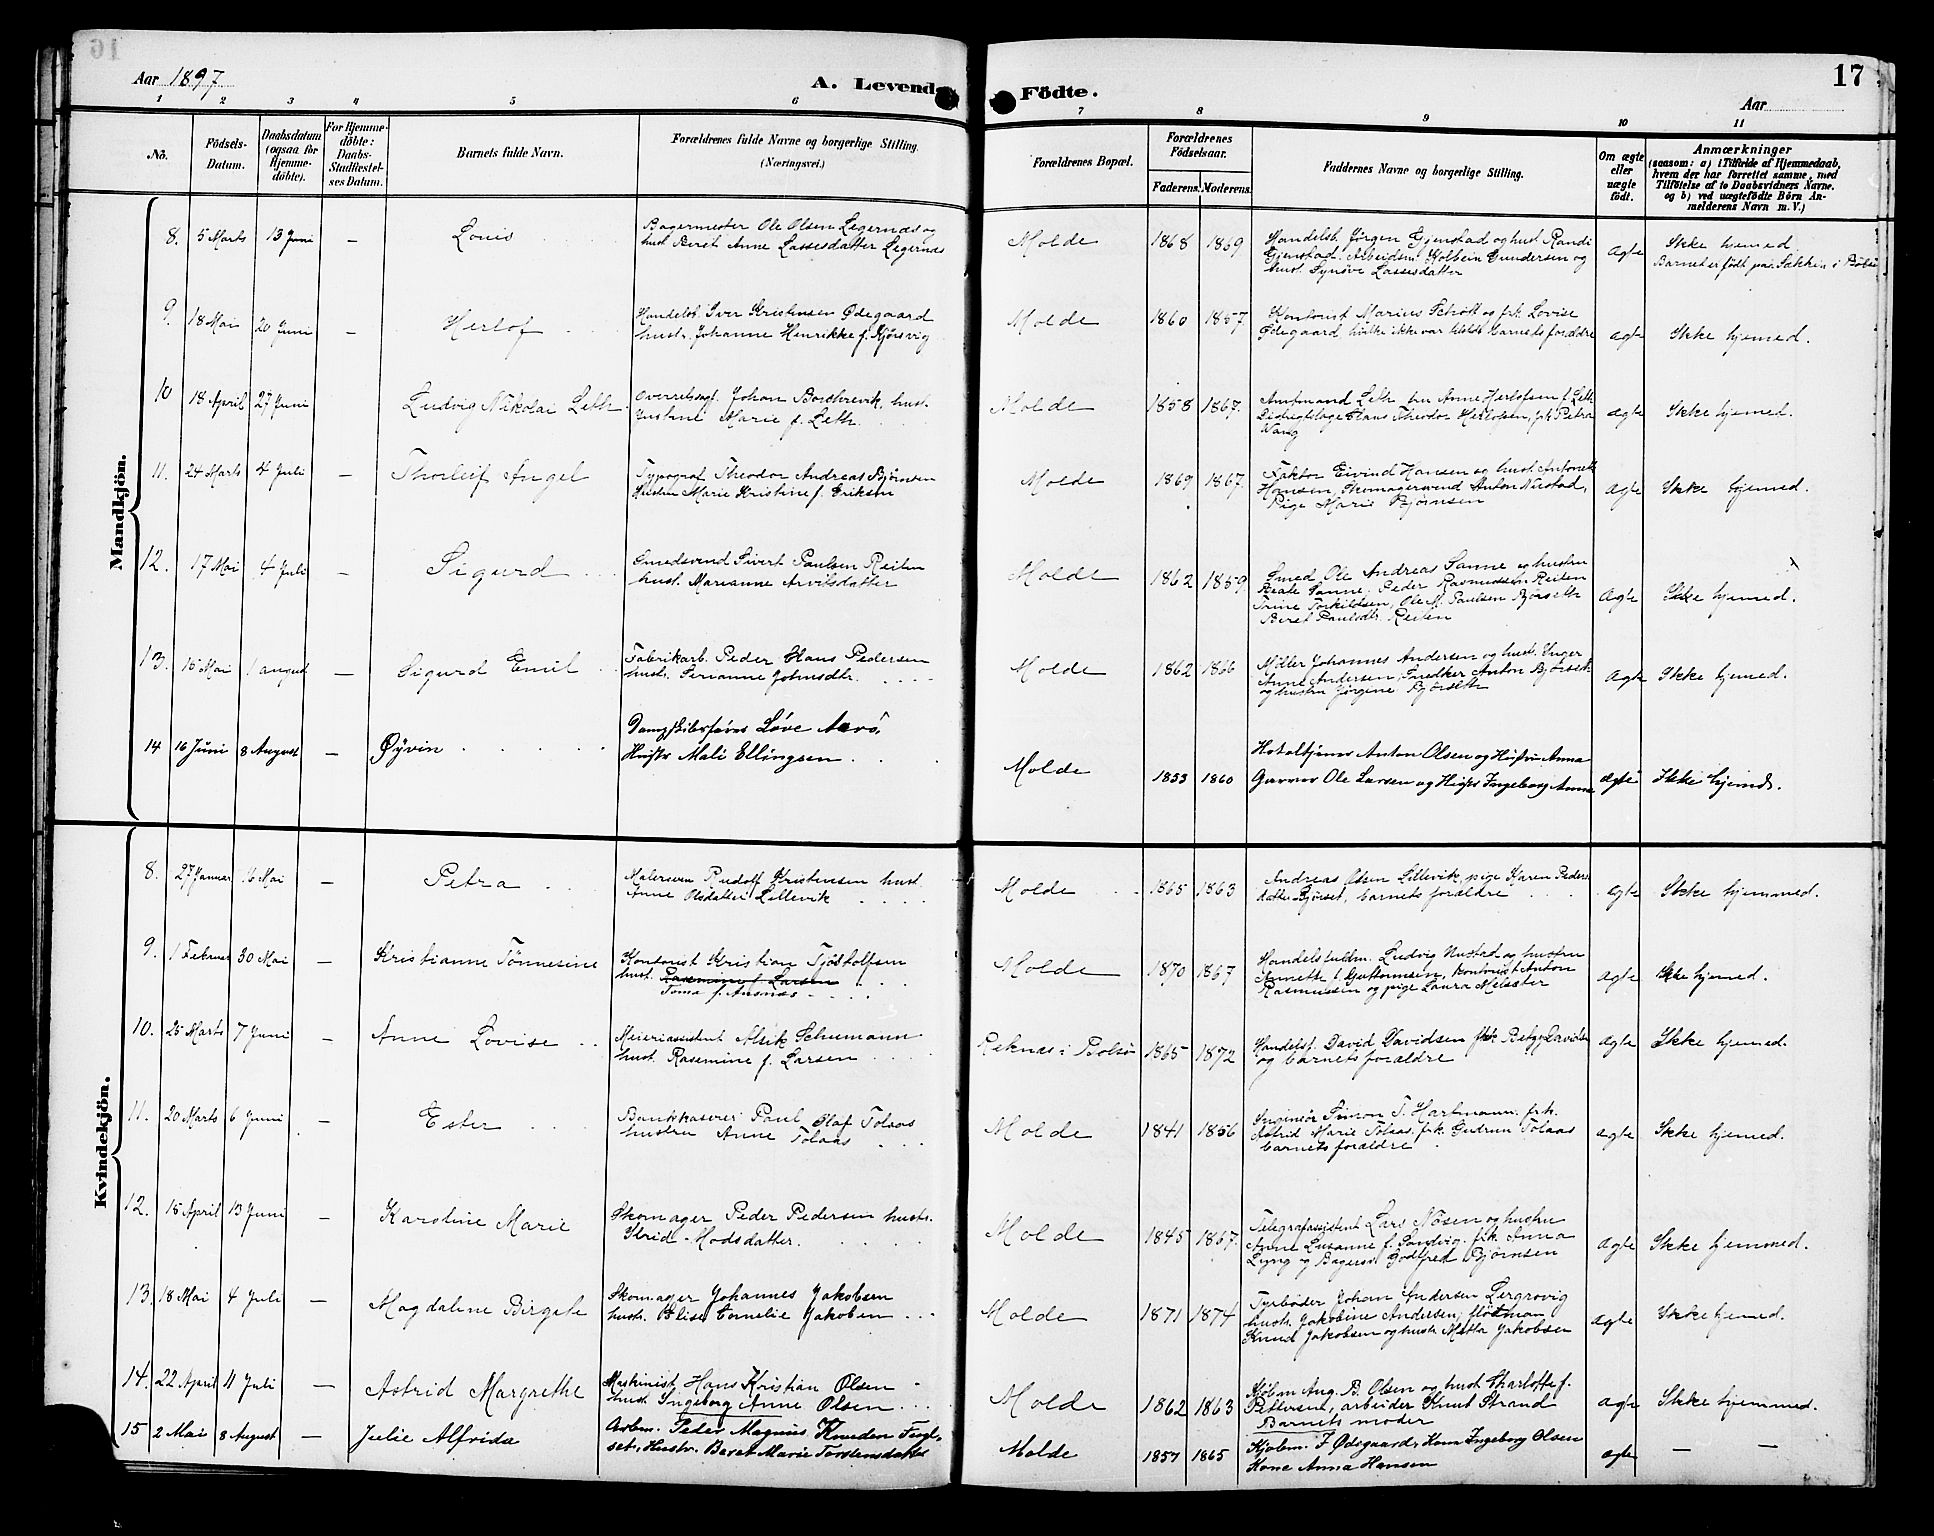 Aar 1897
A. Levende Födte.
17
Aar
1 2 3 4 5 6 7 8 9 10 11
No.
Födsels-Datum.
Daabsdatum (ogsaa for Hjemme-döbte).
For Hjemme-döbte: Daabs-Stadfæstel-ses Datum.
Barnets fulde Navn.
Forældrenes fulde Navne og borgerlige Stilling.
(Næringsvei.)
Forældrenes Bopæl.
Forældrenes Födselsaar.
Faderens. Moderens.
Faddernes Navne og borgerlige Stilling.
Om ægte eller uægte födt.
Anmærkninger
(saasom: a) i Tilfælde af Hjemmedaab,
hvem der har forrettet samme, med
Tilföielse af to Daabsvidners Navne.
og b) ved uægtefödte Börn An-
melderens Navn m. V.)
Mandkjön.
8. 5 Marts 13 Juni — Louis
Bagermester Ole Olsen Legernæs og
hust. Beret Anne Lassesdatter Legernæs
Molde 1868 1869
Handelsb. Jörgen Gjenstad og hust. Randi
Gjenstad. Arbeidsm. Kolbein Gundersen og
hust. Synöve Lassesdatter
ægte
Ikke hjemed.
Barnet er födt paa Sækken i Bolsö
9. 18 Mai 20 Juni — Herlof
Handelsb. Iver Kristensen Ødegaard
hustr. Johanne Henrikke f. Kjörsvig
Molde 1860 1857
Kontorist Marius Schött og frk Lovise
Ødegaard, hvilke ikke var tilstede barnets forældre
ægte Ikke hjemed.
10 18 April 27 Juni Ludvig Nikolai Leth
Overretssagf. Johan Borchrevik, hust.
Justine Marie f. Leth.
Molde 1858 1867.
Amtmand Leth, Anne Herlofsen f. Leth
Distriktslæge Claus Theodor Herlofsen, frk Petra
Wang
ægte Ikke hjemed.
11. 24 Marts 4 Juli — Thorleif Angel
Typograf Theodor Andreas Björnsen
Hustru Marie Kristine f. Eriksen
Molde 1869 1867.
Faktor Eivind Hansen og hust. Antonette
Hansen, Skomagersvend Anton Nustad,
Pige Marie Björnsen
ægte Ikke hjemed.
12. 17 Mai 4 Juli — Sigurd
Smedsvend Sivert Paulsen Reiten
hust. Marianne Arvilsdatter
Molde 1862 1859
Smed Ole Andreas Sanne og hustru
Beate Sanne; Peder Rasmussen Reiten
Trine Torkildsen, Ole M. Paulsen Björseth
Beret Paulsdtr. Reiten
ægte Ikke hjemed.
13. 15 Mai 1 august — Sigurd Emil
Fabrikarb. Peder Hans Pedersen
hust. Serianne Johnsdtr.
Molde 1862 1866
Möller Johannes Andersen og hust. Inger
Anne Andersen, Snedker Anton Björseth
og hustru Jörgine Björseth
ægte Ikke hjemed.
14 16 Juni 8 August — Øyvin
Dampskibsförer Löve Aarö,
Hustr Mali Ellingsen
Molde 1853 1860
Hoteltjener Anton Olsen og Hustru Anna
Garver Ole Larsen og Hustr Ingeborg Anna
ægte Ikke hjemd.
Kvindekjön.
8. 27 Januar 16 Mai — Petra
Malersven Rudolf Kristensen hust.
Anne Olsdatter Lillevik
Molde 1865 1863
Andreas Olsen Lillevik, pige Karen Peders-
datter Björset, barnets forældre
ægte Ikke hjemmed.
9. 1 Februar 30 Mai — Kristianne Tönnesine
Kontorist Kristian Tjöstolfsen
hust. Rasmine f. Larsen
Toma f. Aasnæs
Molde 1870 1867
Handelsfuldm. Ludvig Nustad og hustru
Annette f. Guttormsen, kontorist Anton
Rasmussen og pige Laura Melseter
ægte Ikke hjemed.
10. 25 Marts 7 Juni — Anne Lovise
Meieriassistent Alrik Schumann
hust. Rasmine f. Larsen
Reknæs i Bolsö 1865 1872
Handelsf. David Davidsen frk. Betzy Davidsen
og barnets forældre
ægte Ikke hjemed.
11. 20 Marts 6 Juni — Ester
Bankkaserer Paul Olaf Tolaas
hustru Anne Tolaas
Molde 1841 1856
Ingeniör Simon T. Hartmann. frk.
Astrid Marie Tolaas, frk. Gudrun Tolaas
barnets forældre
ægte Ikke hjemed.
12. 15 April 13 Juni — Karoline Marie
Skomager Peder Pedersen hust.
Sirid Madsdatter.
Molde 1845 1867.
Telegrafassistent Lars Nösen og hustru
Anne Susanne f. Sandvig. frk. Anna
Lyng og Bagersv. Godtfred Björnsen
ægte Ikke hjemmed.
13. 18 Mai 4 Juli — Magdalene Birgete
Skomager Johannes Jakobsen
hust. Elise Cornelie Jakobsen
Molde 1871 1874
Fyrböder Johan Andersen Lergrovig
hust. Jakobine Andersen; Flötman
Knud Jakobsen og hustr. Metta Jakobsen
ægte Ikke hjemed.
14. 22 April 11 Juli — Astrid Margrethe
Maskinist Hans Kristian Olsen
hust Ingeborg Anne Olsen
Molde 1862 1863
Kjöbm Aug. B. Olsen og hust Charlotte f.
Pettersen, arbeider Knut Strand
Barnets moder
ægte Ikke hjemmed.
15 2 Mai 8 August — Julie Alfride
Arbm. Peder Magnus Knudsen Fugl-
set, Hustr. Beret Marie Torstensdatter
Molde 1857 1865
Kjöbm. J Ødegaard, Kone Ingeborg Olsen
Kone Anna Hansen
ægte — —